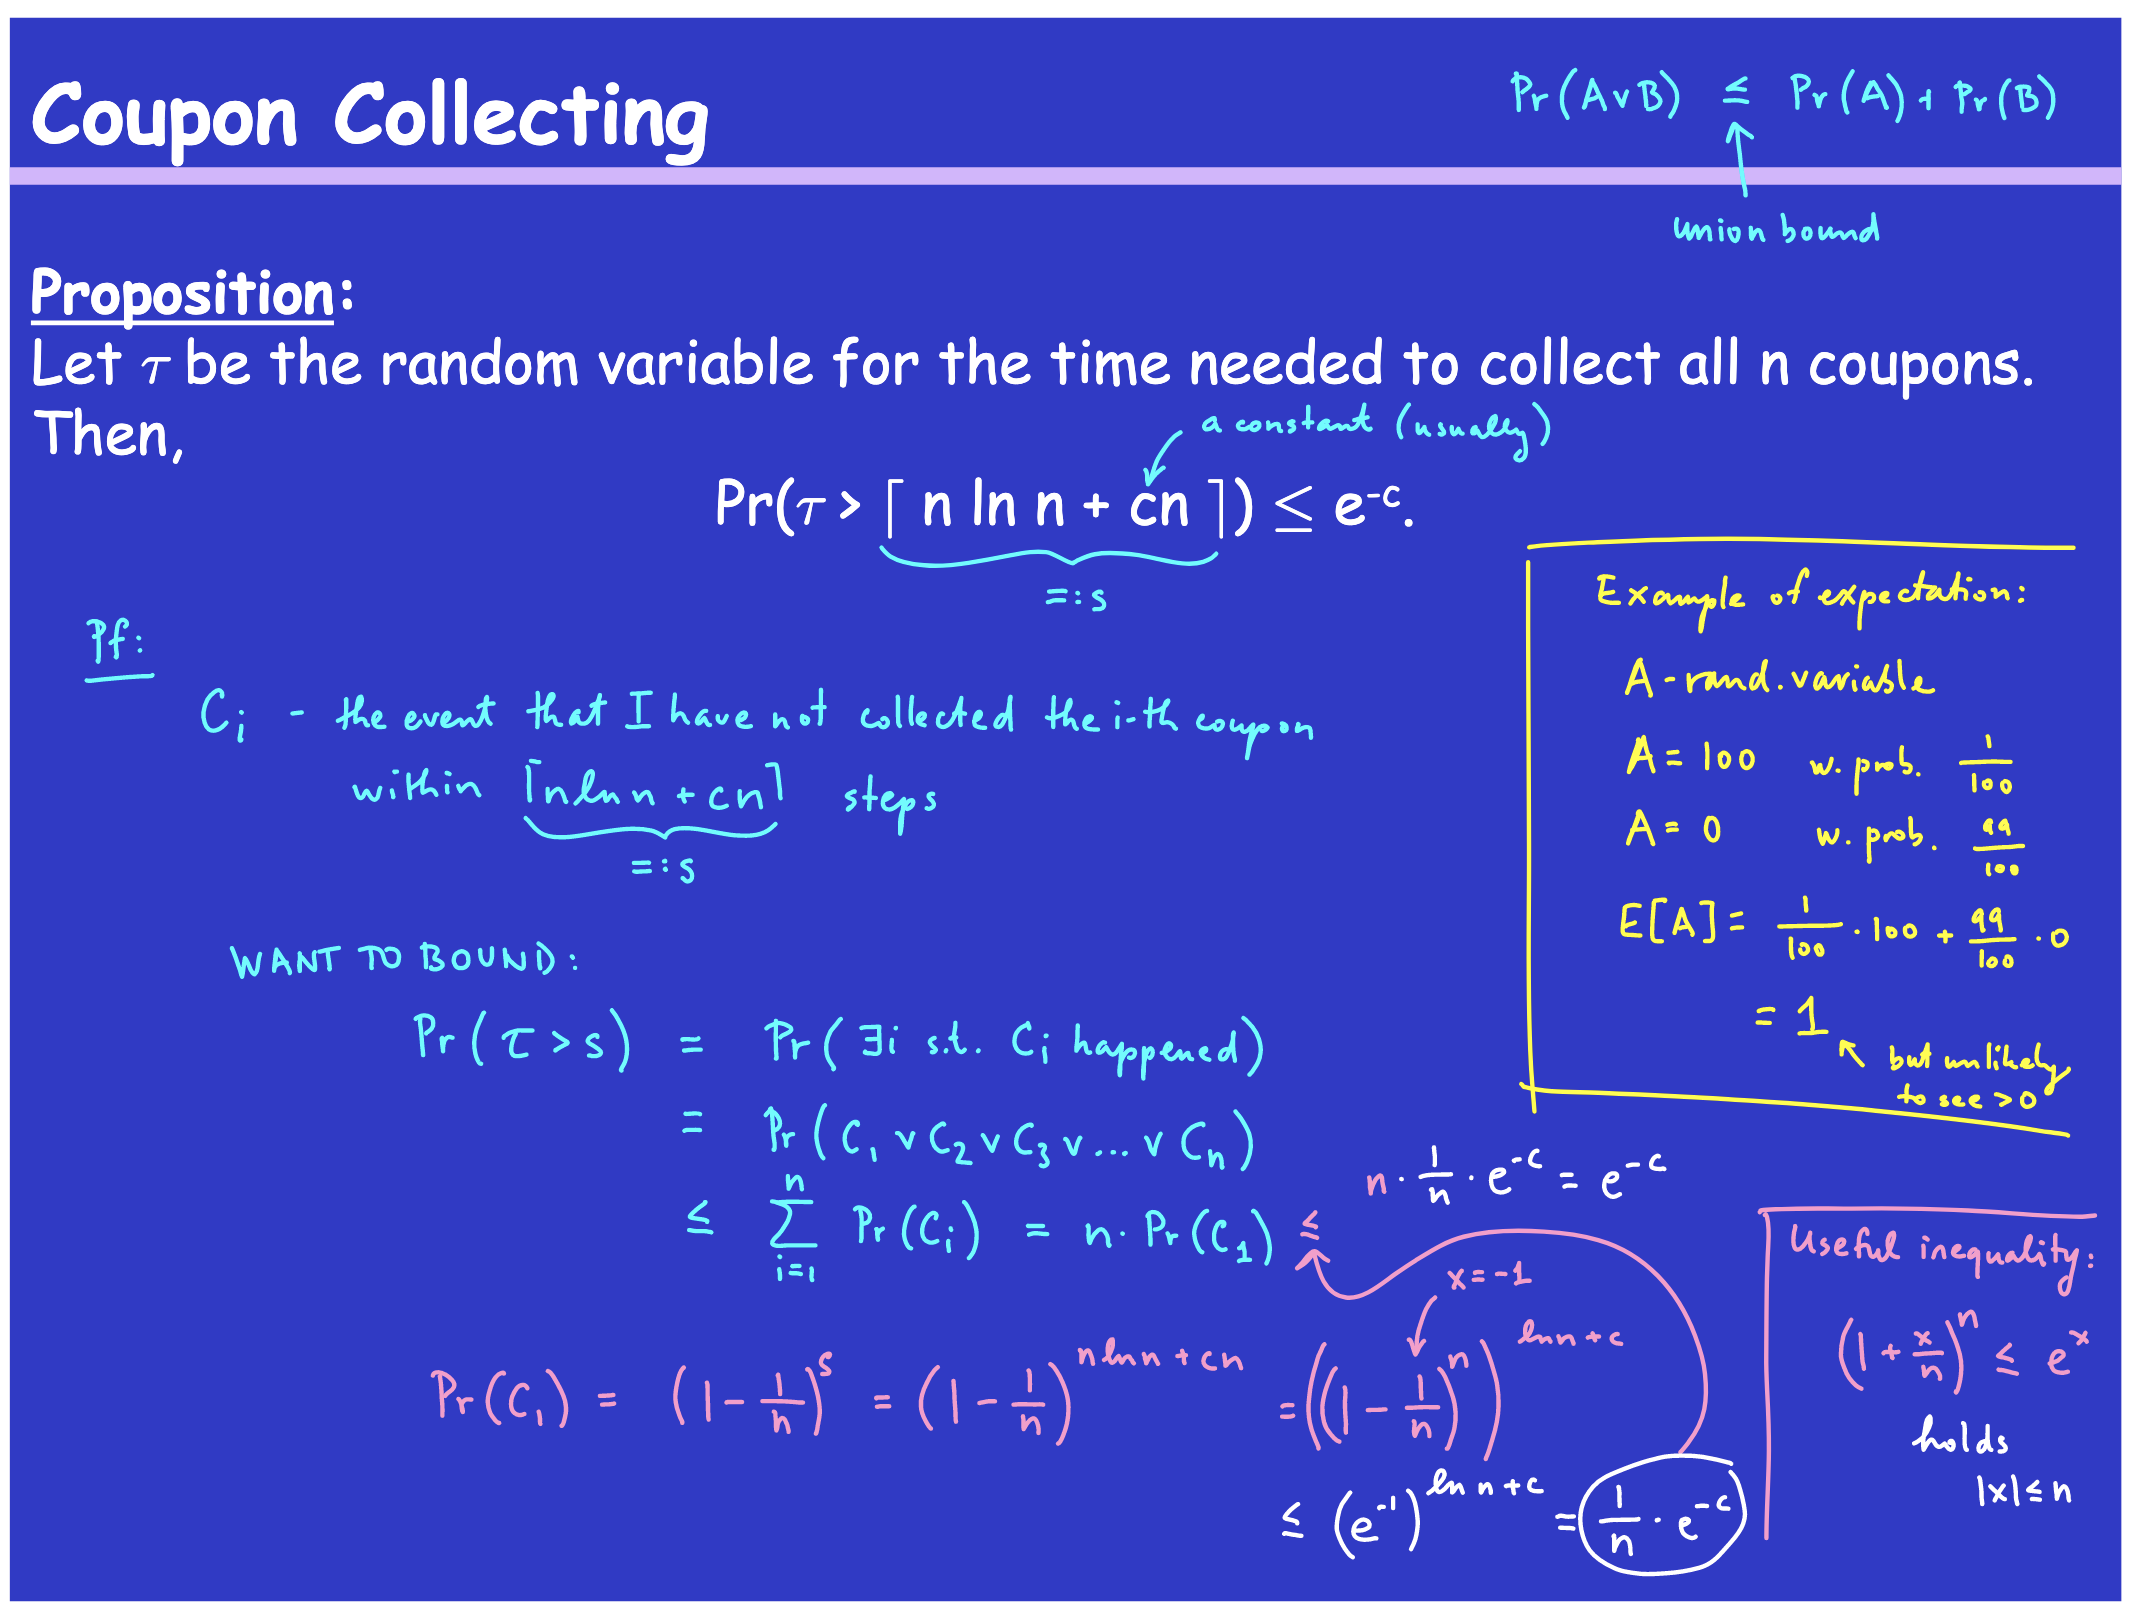 Coupon Collecting
Pr(A∨B) ≤ Pr(A) + Pr(B)
union bound
Proposition:
Let τ be the random variable for the time needed to collect all n coupons.
Then,
a constant (usually)
Pr(τ > ⌈ n ln n + cn ⌉) ≤ e^{-c}.
=: s
Pf:
C_i - the event that I have not collected the i-th coupon
within ⌈n ln n + cn⌉ steps
=: s
WANT TO BOUND:
Pr(τ > s) = Pr(∃i s.t. C_i happened)
= Pr(C_1 ∨ C_2 ∨ C_3 ∨ ... ∨ C_n)
≤ ∑_{i=1}^{n} Pr(C_i) = n · Pr(C_1) ≤ n · 1/n · e^{-c} = e^{-c}
x = -1
Pr(C_1) = (1 - 1/n)^s = (1 - 1/n)^{n ln n + cn} = ((1 - 1/n)^n)^{ln n + c}
≤ (e^{-1})^{ln n + c} = 1/n · e^{-c}
Example of expectation:
A - rand. variable
A = 100 w. prob. 1/100
A = 0 w. prob. 99/100
E[A] = 1/100 · 100 + 99/100 · 0
= 1
but unlikely
to see > 0
Useful inequality:
(1 + x/n)^n ≤ e^x
holds
|x| ≤ n